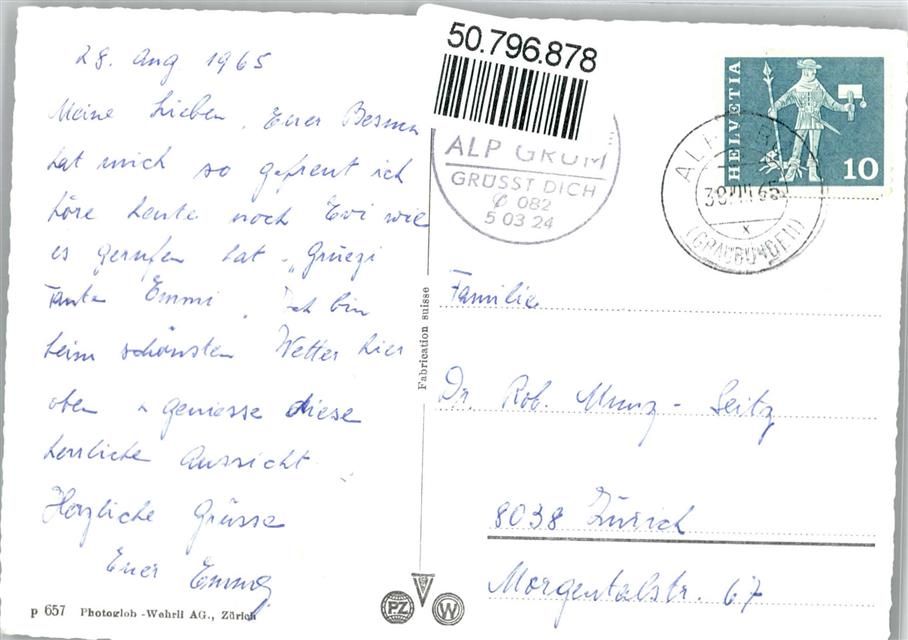 28. Aug 1965
Meine Lieben, Euer Besuch
hat mich so gefreut ich
höre heute noch Evi wie
es gerufen hat - "Grüezi
Tante Emmi, Ich bin
beim schönsten Wetter hier
oben & geniesse diese
herrliche Aussicht.
Herzliche Grüsse
Euer Emmy
p 657 Photoglob-Wehrli AG., Zürich
Fabrication suisse
50.796.878
ALP GRÜM
GRÜSST DICH
082
5 03 24
HELVETIA
10
ALP
(GRAUBÜNDEN)
Familie
Dr. Rob. Munz-Seitz
8038 Zürich
Morgentalstr. 67
PZ
W